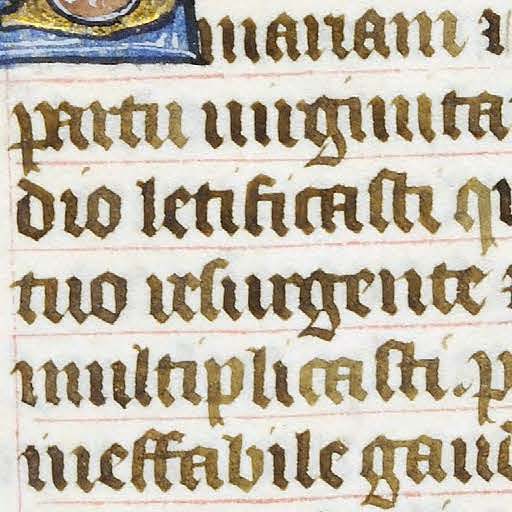 mariam
partu uirginita
dio letificasti
tuo resurgente
multiplicasti. p
ineffabile gaud